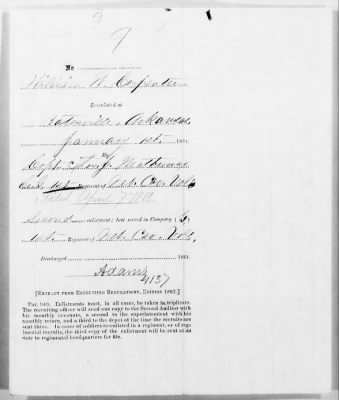 No
William W. Carpenter
Enlisted at
Batesville, Arkansas,
January 1st 1864.
By
Capt.
Regiment of Neb. Cav. Vols.
Second enlistment; last served in Company (
1st Regiment of Neb. Cav. Vols,
Discharged 186 .
Adams
4137
[EXTRACT FROM RECRUITING REGULATIONS, EDITION 1862.]
PAR. 940. Enlistments must, in all cases, be taken in triplicate.
The recruiting officer will send one copy to the Second Auditor with
his monthly accounts, a second to the superintendent with his
monthly return, and a third to the depot at the time the recruits are
sent there. In cases of soldiers re-enlisted in a regiment, or of reg-
imental recruits, the third copy of the enlistment will be sent at its
date to regimental headquarters for file.